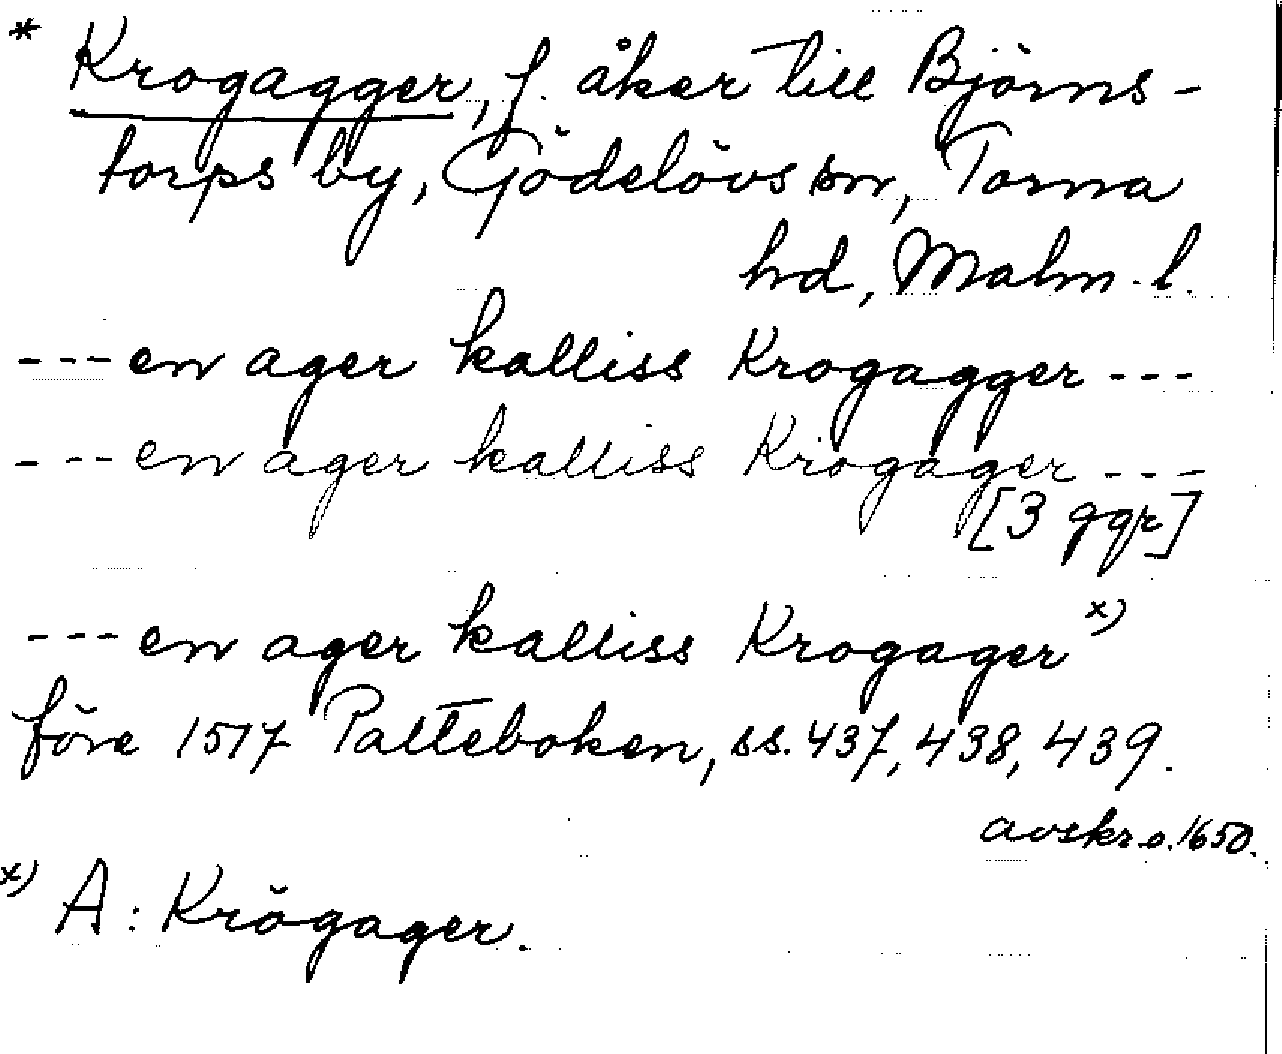 * Krogagger, f. åker till Björns-
torps by, Gödelövs sn, Torna
hd, Malm. l.
--- en ager kalliss Krogagger ---
--- en ager kalliss Krogager ---
[3 ggr]
--- en ager kalliss Krogager x)
före 1517 Palteboken, ss. 437, 438, 439.
avskr. o. 1650.
x) A: Krögager.